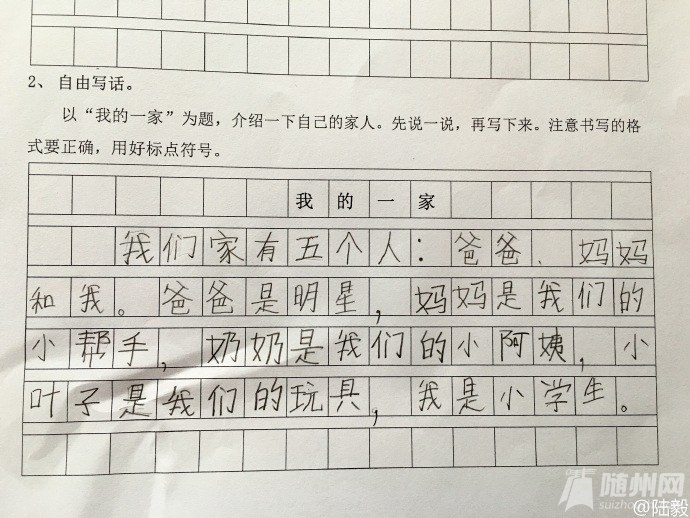 2、自由写话。
以“我的一家”为题，介绍一下自己的家人。先说一说，再写下来。注意书写的格
式要正确，用好标点符号。
我的一家
我们家有五个人：爸爸、妈妈
和我。爸爸是明星，妈妈是我们的
小帮手，奶奶是我们的小阿姨，小
叶子是我们的玩具，我是小学生。
随州网
@陆毅